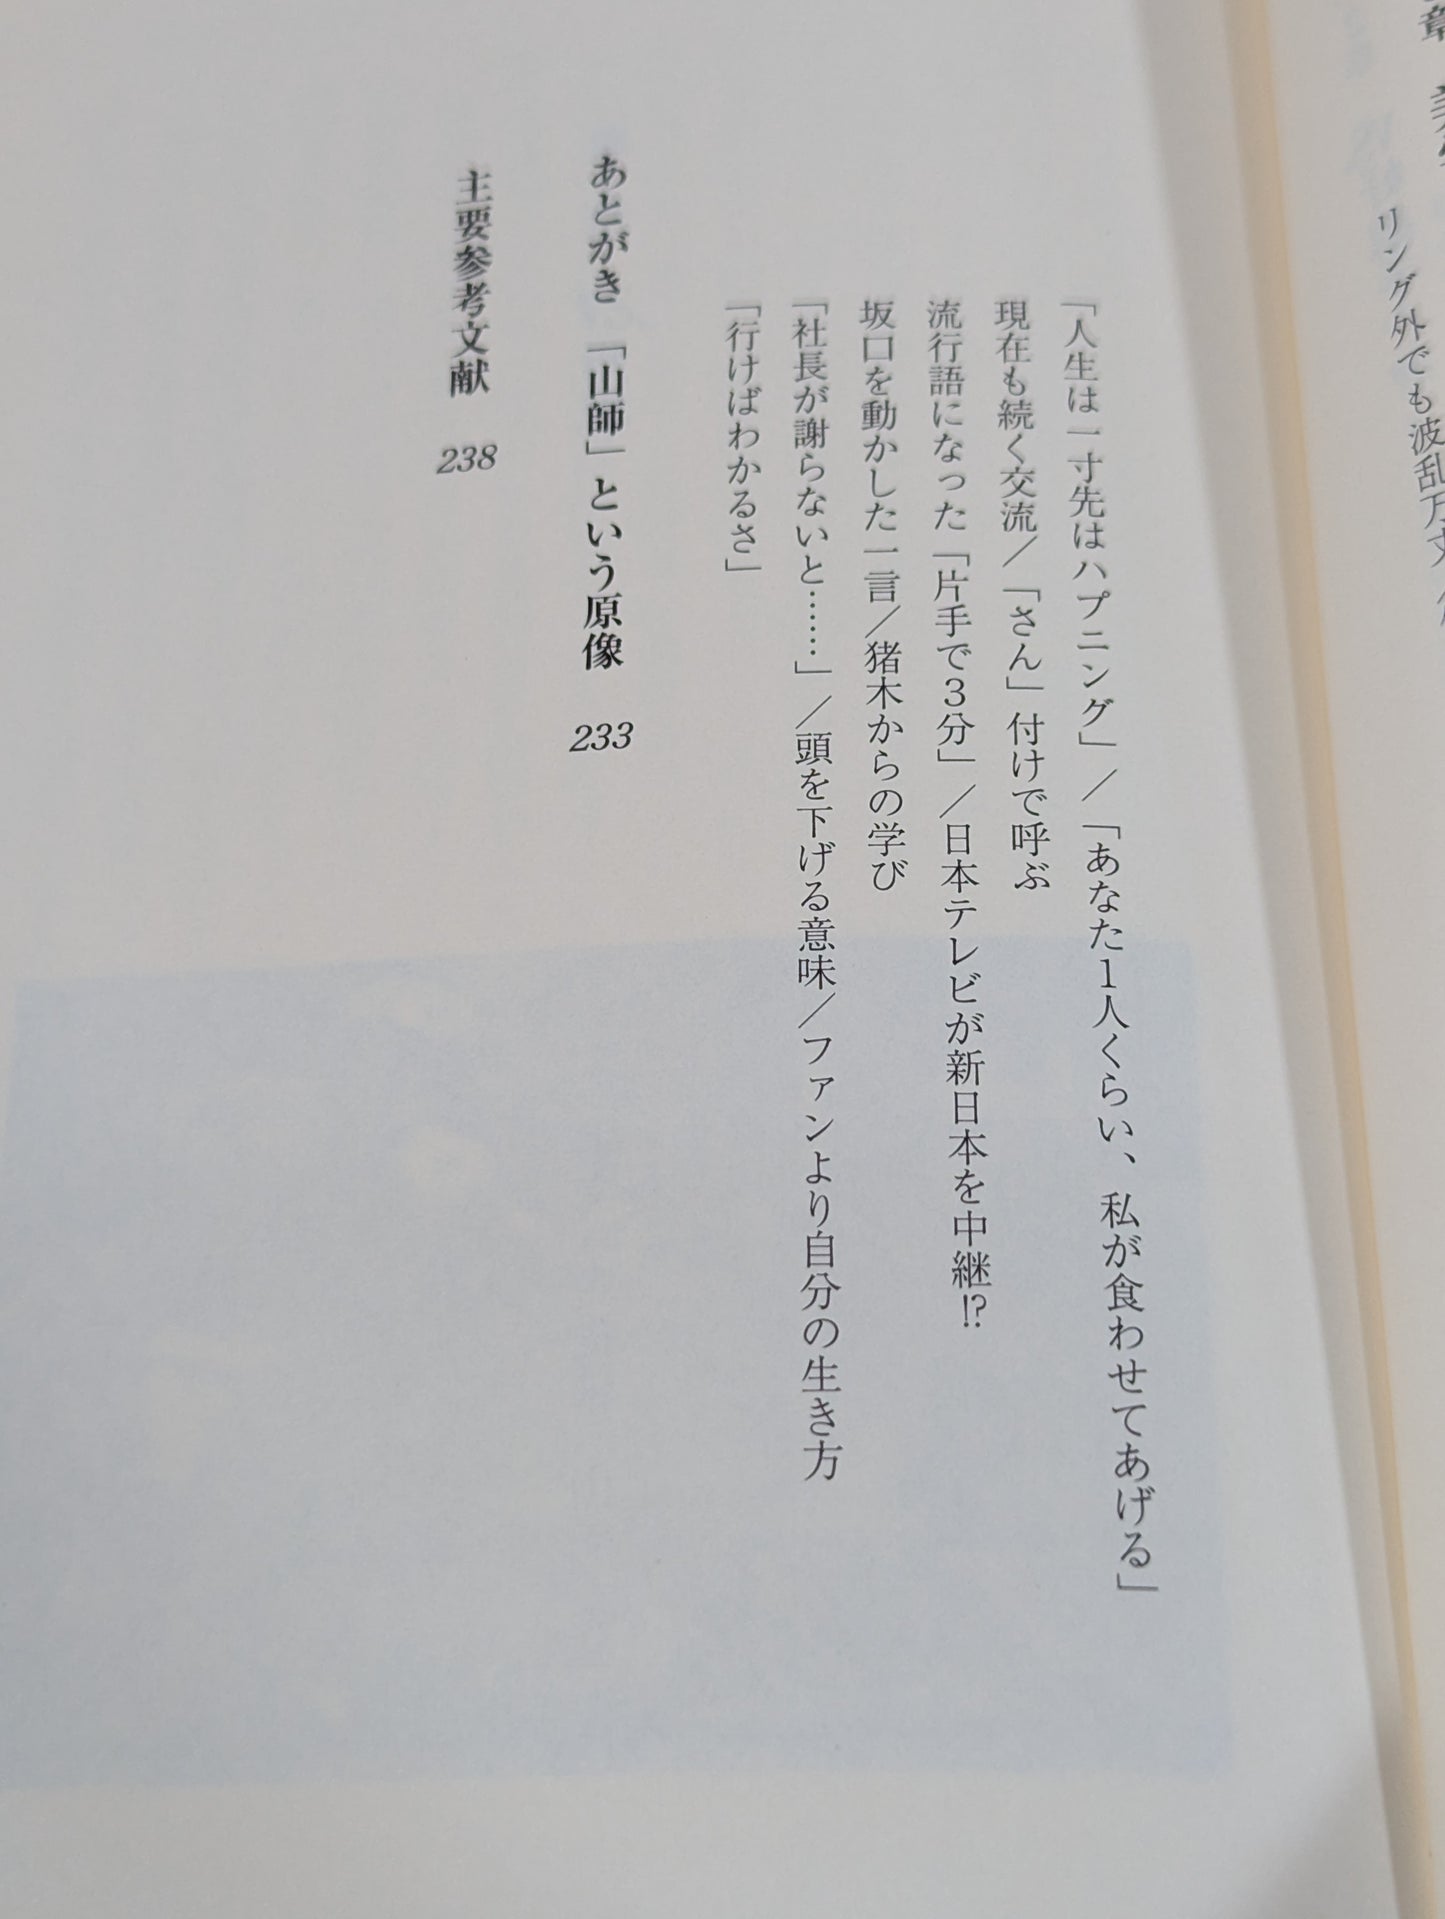 リング外でも波乱万丈
「人生は一寸先はハプニング」／「あなた1人くらい、私が食わせてあげる」
現在も続く交流／「さん」付けで呼ぶ
流行語になった「片手で3分」／日本テレビが新日本を中継!?
坂口を動かした一言／猪木からの学び
「社長が謝らないと……」／頭を下げる意味／ファンより自分の生き方
「行けばわかるさ」
あとがき 「山師」という原像 233
主要参考文献 238